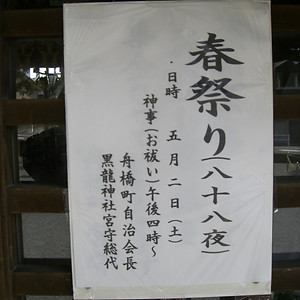 春祭り(八十八夜)
・日時 五月二日(土)
神事(お祓い)午後四時~
舟橋町自治会長
黒龍神社宮守総代